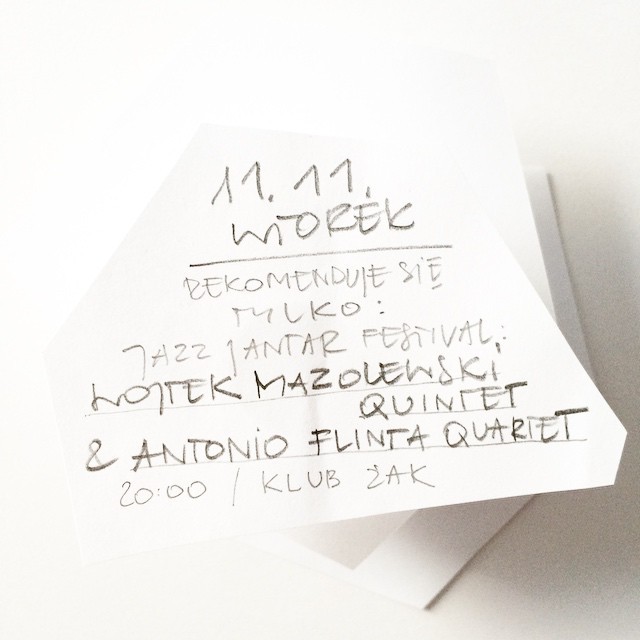 11. 11.
WTOREK
REKOMENDUJE SIĘ
TYLKO:
JAZZ JANTAR FESTIVAL:
WOJTEK MAZOLEWSKI
QUINTET
& ANTONIO FLINTA QUARTET
20:00 / KLUB ŻAK